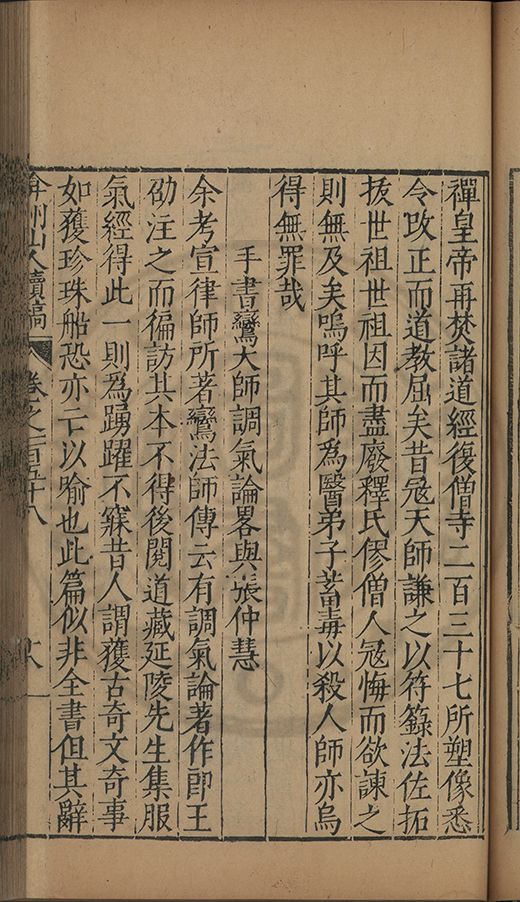 禪皇帝再焚諸道經復僧寺二百三十七所塑像悉
令改正而道教屈矣昔冦天師謙之以符籙法佐拓
拔世祖世祖因而盡廢釋氏僇僧人冦悔而欲諫之
則無及矣嗚呼其師為醫弟子畜毒以殺人師亦烏
得無罪哉
手書鸞大師調氣論畧與張仲慧
余考宣律師所著鸞法師傳云有調氣論著作郎王
劭注之而徧訪其本不得後閱道藏延陵先生集服
氣經得此一則為踴躍不寐昔人謂獲古奇文奇事
如獲珍珠船恐亦亡以喻也此篇似非全書但其辭
弇州山人續稿 卷之一百五十八